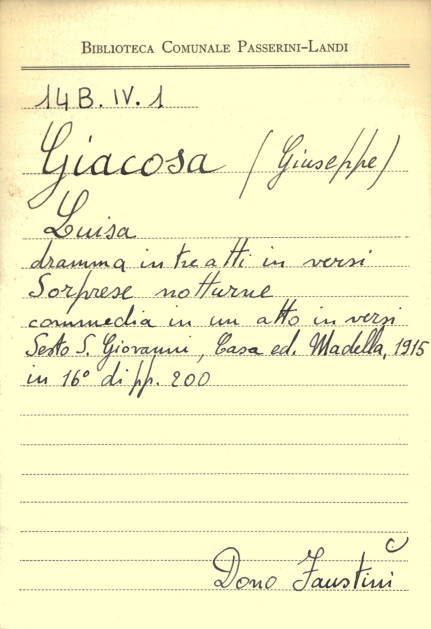 BIBLIOTECA COMUNALE PASSERINI-LANDI
14 B. IV. 1
Giacosa (Giuseppe)
Luisa
dramma in tre atti in versi
Sorprese notturne
commedia in un atto in versi
Sesto S. Giovanni, Casa ed. Madella, 1915
in 16° di pp. 200
C
Dono Faustini